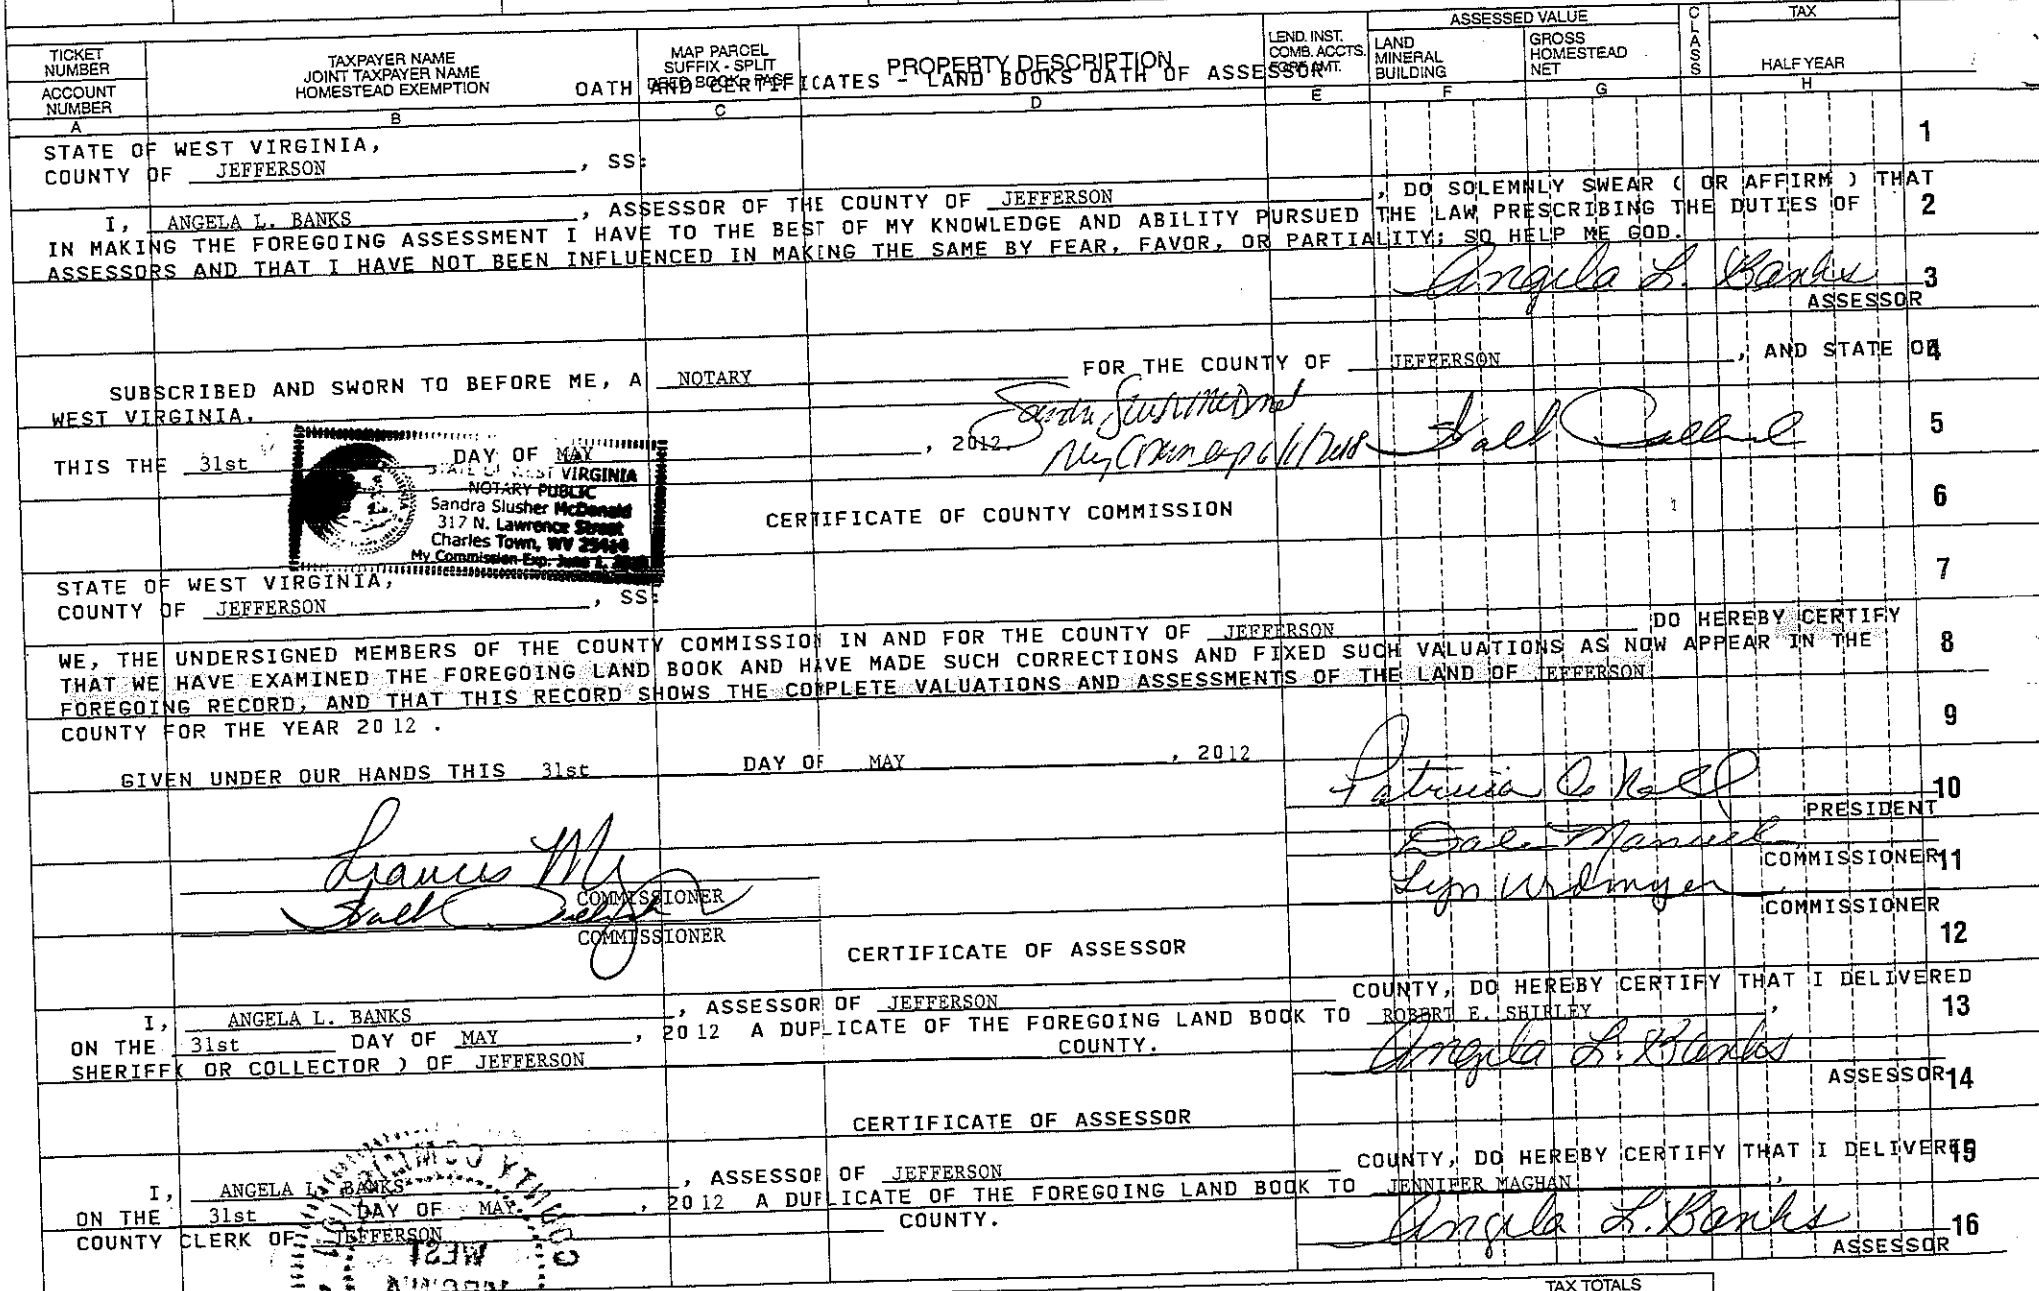 ASSESSED VALUE CLASS TAX
TICKET NUMBER
ACCOUNT NUMBER
TAXPAYER NAME
JOINT TAXPAYER NAME
HOMESTEAD EXEMPTION
MAP PARCEL
SUFFIX - SPLIT
DEED BOOK - PAGE
PROPERTY DESCRIPTION
LEND. INST.
COMB. ACCTS.
LAND
MINERAL
BUILDING
GROSS
HOMESTEAD
NET
HALF YEAR
OATH AND CERTIFICATES - LAND BOOKS OATH OF ASSESSOR
A B C D E F G H
1
STATE OF WEST VIRGINIA,
COUNTY OF JEFFERSON, SS:
I, ANGELA L. BANKS, ASSESSOR OF THE COUNTY OF JEFFERSON, DO SOLEMNLY SWEAR ( OR AFFIRM ) THAT
2
IN MAKING THE FOREGOING ASSESSMENT I HAVE TO THE BEST OF MY KNOWLEDGE AND ABILITY PURSUED THE LAW PRESCRIBING THE DUTIES OF
ASSESSORS AND THAT I HAVE NOT BEEN INFLUENCED IN MAKING THE SAME BY FEAR, FAVOR, OR PARTIALITY; SO HELP ME GOD.
Angela L. Banks 3
ASSESSOR
SUBSCRIBED AND SWORN TO BEFORE ME, A NOTARY FOR THE COUNTY OF JEFFERSON, AND STATE OF 4
WEST VIRGINIA.
5
THIS THE 31st DAY OF MAY, 2012.
STATE OF WEST VIRGINIA
NOTARY PUBLIC
Sandra Slusher McDonald
317 N. Lawrence Street
Charles Town, WV 25414
My Commission Exp. June 1,
6
CERTIFICATE OF COUNTY COMMISSION
7
STATE OF WEST VIRGINIA,
COUNTY OF JEFFERSON, SS:
WE, THE UNDERSIGNED MEMBERS OF THE COUNTY COMMISSION IN AND FOR THE COUNTY OF JEFFERSON DO HEREBY CERTIFY
8
THAT WE HAVE EXAMINED THE FOREGOING LAND BOOK AND HAVE MADE SUCH CORRECTIONS AND FIXED SUCH VALUATIONS AS NOW APPEAR IN THE
FOREGOING RECORD, AND THAT THIS RECORD SHOWS THE COMPLETE VALUATIONS AND ASSESSMENTS OF THE LAND OF JEFFERSON
COUNTY FOR THE YEAR 2012.
9
GIVEN UNDER OUR HANDS THIS 31st DAY OF MAY, 2012
Patricia 10
PRESIDENT
Dale Manuel
COMMISSIONER 11
Lyn Widmyer
COMMISSIONER
Frances
COMMISSIONER
Walt
COMMISSIONER
12
CERTIFICATE OF ASSESSOR
I, ANGELA L. BANKS, ASSESSOR OF JEFFERSON COUNTY, DO HEREBY CERTIFY THAT I DELIVERED
13
ON THE 31st DAY OF MAY, 2012 A DUPLICATE OF THE FOREGOING LAND BOOK TO ROBERT E. SHIRLEY,
SHERIFF( OR COLLECTOR ) OF JEFFERSON COUNTY.
Angela L. Banks
ASSESSOR 14
CERTIFICATE OF ASSESSOR
I, ANGELA L. BANKS, ASSESSOR OF JEFFERSON COUNTY, DO HEREBY CERTIFY THAT I DELIVERED 15
ON THE 31st DAY OF MAY, 2012 A DUPLICATE OF THE FOREGOING LAND BOOK TO JENNIFER MAGHAN,
COUNTY CLERK OF JEFFERSON COUNTY.
Angela L. Banks 16
ASSESSOR
COUNTY
WEST
TAX TOTALS